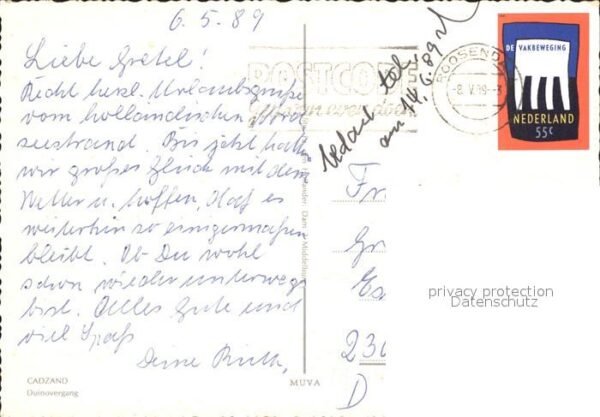 6.5.89
Liebe Gretel!
Recht herzl. Urlaubsgrüße
vom holländischen Nord
seestrand. Bis jetzt hatten
wir großes Glück mit dem
Wetter u. hoffen, daß es
weiterhin so einigermaßen
bleibt. Ob Du wohl
schon wieder unterwegs
bist. Alles Gute und
viel Spaß
Deine Ruth,
CADZAND
Duinovergang
MUVA
POSTCODE
ROOSENDAAL
-8.V.89.-3
bedankt tel.
am 14.6.89
DE VAKBEWEGING
NEDERLAND
55c
Fr
Gr
230
D
privacy protection
Datenschutz